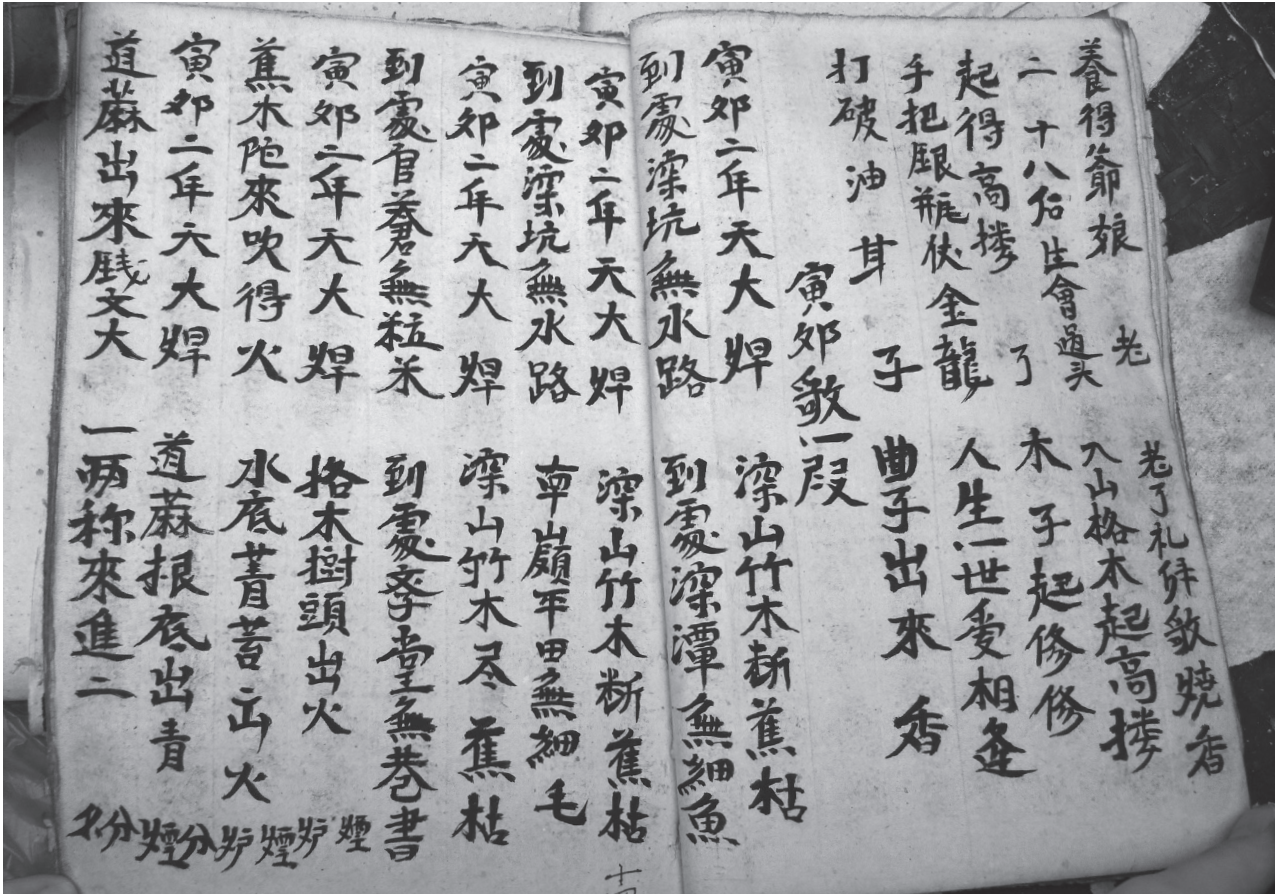 養得爺娘老 老了礼拜敬燒香
二十八生會過头 入山格木起高楼
起得高楼了 木子起修修
手把銀瓶伏金龍 人生一世受相逢
打破油甘子 曲子出來香
寅夘歌一段
寅夘二年天大焊 深山竹木断蕉枯
到處深坑無水路 到處深潭無細魚
寅夘二年天大焊 深山竹木断蕉枯
到處深坑無水路 南山嶺平田無細毛
寅夘二年天大焊 深山竹木尽蕉枯
到處官倉無粒米 到處斈堂無巷書
寅夘二年天大焊 格木樹頭出火炉煙
蕉木陀來吹得火 水底菁苔出火炉煙
寅夘二年天大焊 道蔴根底出青煙分
道蔴出來銭文大 一两称來進二分